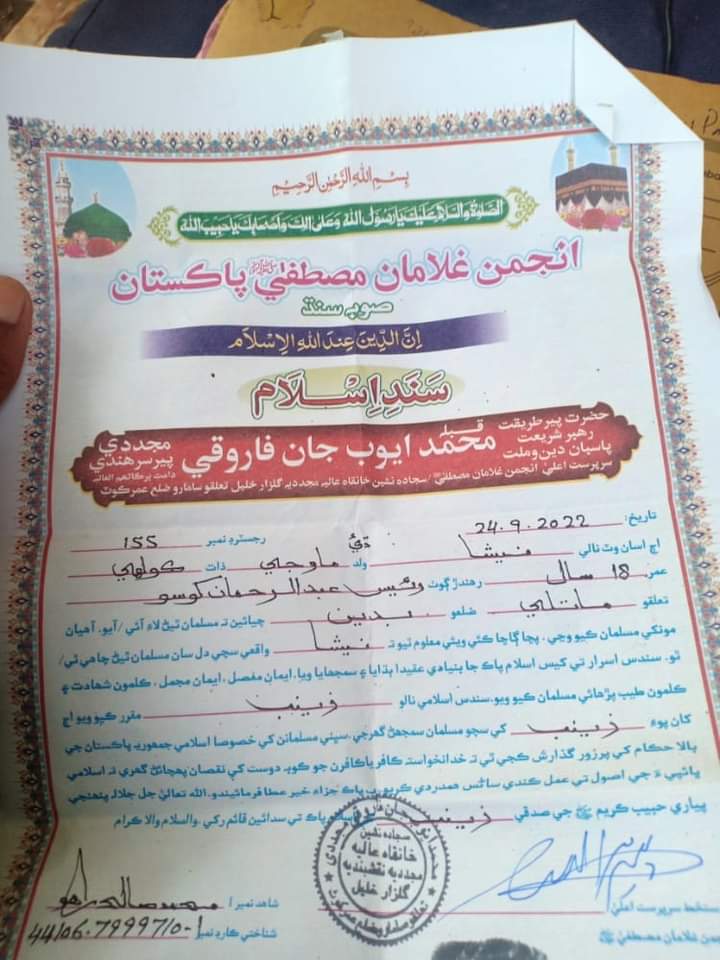 بِسْمِ اللهِ الرَّحْمٰنِ الرَّحِيْمِ
الصَّلوٰةُ وَالسَّلَامُ عَلَيْكَ يَا رَسُوْلَ اللهِ وَعَلىٰ اٰلِكَ وَاَصْحَابِكَ يَا حَبِيْبَ اللهِ
انجمن غلامان مصطفيٰ ﷺ پاڪستان
صوبه سنڌ
اِنَّ الدِّيْنَ عِنْدَ اللهِ الْاِسْلَام
سَنَدِ اِسْلَام
حضرت پير طريقت
رهبر شريعت
پاسبان دين و ملت
قبله محمد ايوب جان فاروقي
مجددي
پير سرهندي
دامت برڪاتهم العاليه
سرپرست اعليٰ: انجمن غلامان مصطفيٰ ﷺ / سجاده نشين خانقاه عاليه مجدديه گلزار خليل تعلقو سامارو ضلع عمرڪوٽ
تاريخ: 24.9.2022 رجسٽرڊ نمبر 155
اڄ اسان وٽ نالي نيشا ڌيءُ ولد ماوجي ذات ڪولهي
عمر: 18 سال رهندڙ ڳوٺ وڏيرو عبدالرحمان کوسو
تعلقو ماتلي ضلعو بدين چيائين ته مسلمان ٿيڻ لاءِ آئي/آيو. آهيان
مونکي مسلمان ڪيو وڃي. پڇا ڳاڇا ڪئي ويئي معلوم ٿيو ته نيشا واقعي سچي دل سان مسلمان ٿيڻ چاهي ٿي/
ٿو. سندس اسرار تي کيس اسلام پاڪ جا بنيادي عقيدا ٻڌايا ۽ سمجهايا ويا. ايمان مفصل، ايمان مجمل، ڪلمون شهادت ۽
ڪلمون طيب پڙهائي مسلمان ڪيو ويو. سندس اسلامي نالو زينب مقرر ڪيو ويو اڄ
کان پوءِ زينب کي سچو مسلمان سمجهڻ گهرجي. سڀني مسلمانن کي خصوصا اسلامي جمهوريه پاڪستان جي
بالا حڪام کي پرزور گذارش ڪجي ٿي ته خدانخواسته ڪافر يا ڪافرن جو ڪو به دوست کي نقصان پهچائڻ گهري ته اسلامي
ڀائپي ۽ جي اصول تي عمل ڪندي ساڻس همدردي ڪريو. رب پاڪ جزاءِ خير عطا فرمائيندو. الله تعاليٰ جل جلاله پنهنجي
پياري حبيب ڪريم ﷺ جي صدقي زينب کي پاڪ تي سدائين قائم رکي. والسلام والا ڪرام
سجاده نشين
خانقاه عاليه
مجدديه نقشبنديه
گلزار خليل
شاهد نمبر 1 محمد صالح راهو
شناختي ڪارڊ نمبر 44106.7999710-1
دستخط سرپرست اعليٰ
انجمن غلامان مصطفيٰ ﷺ